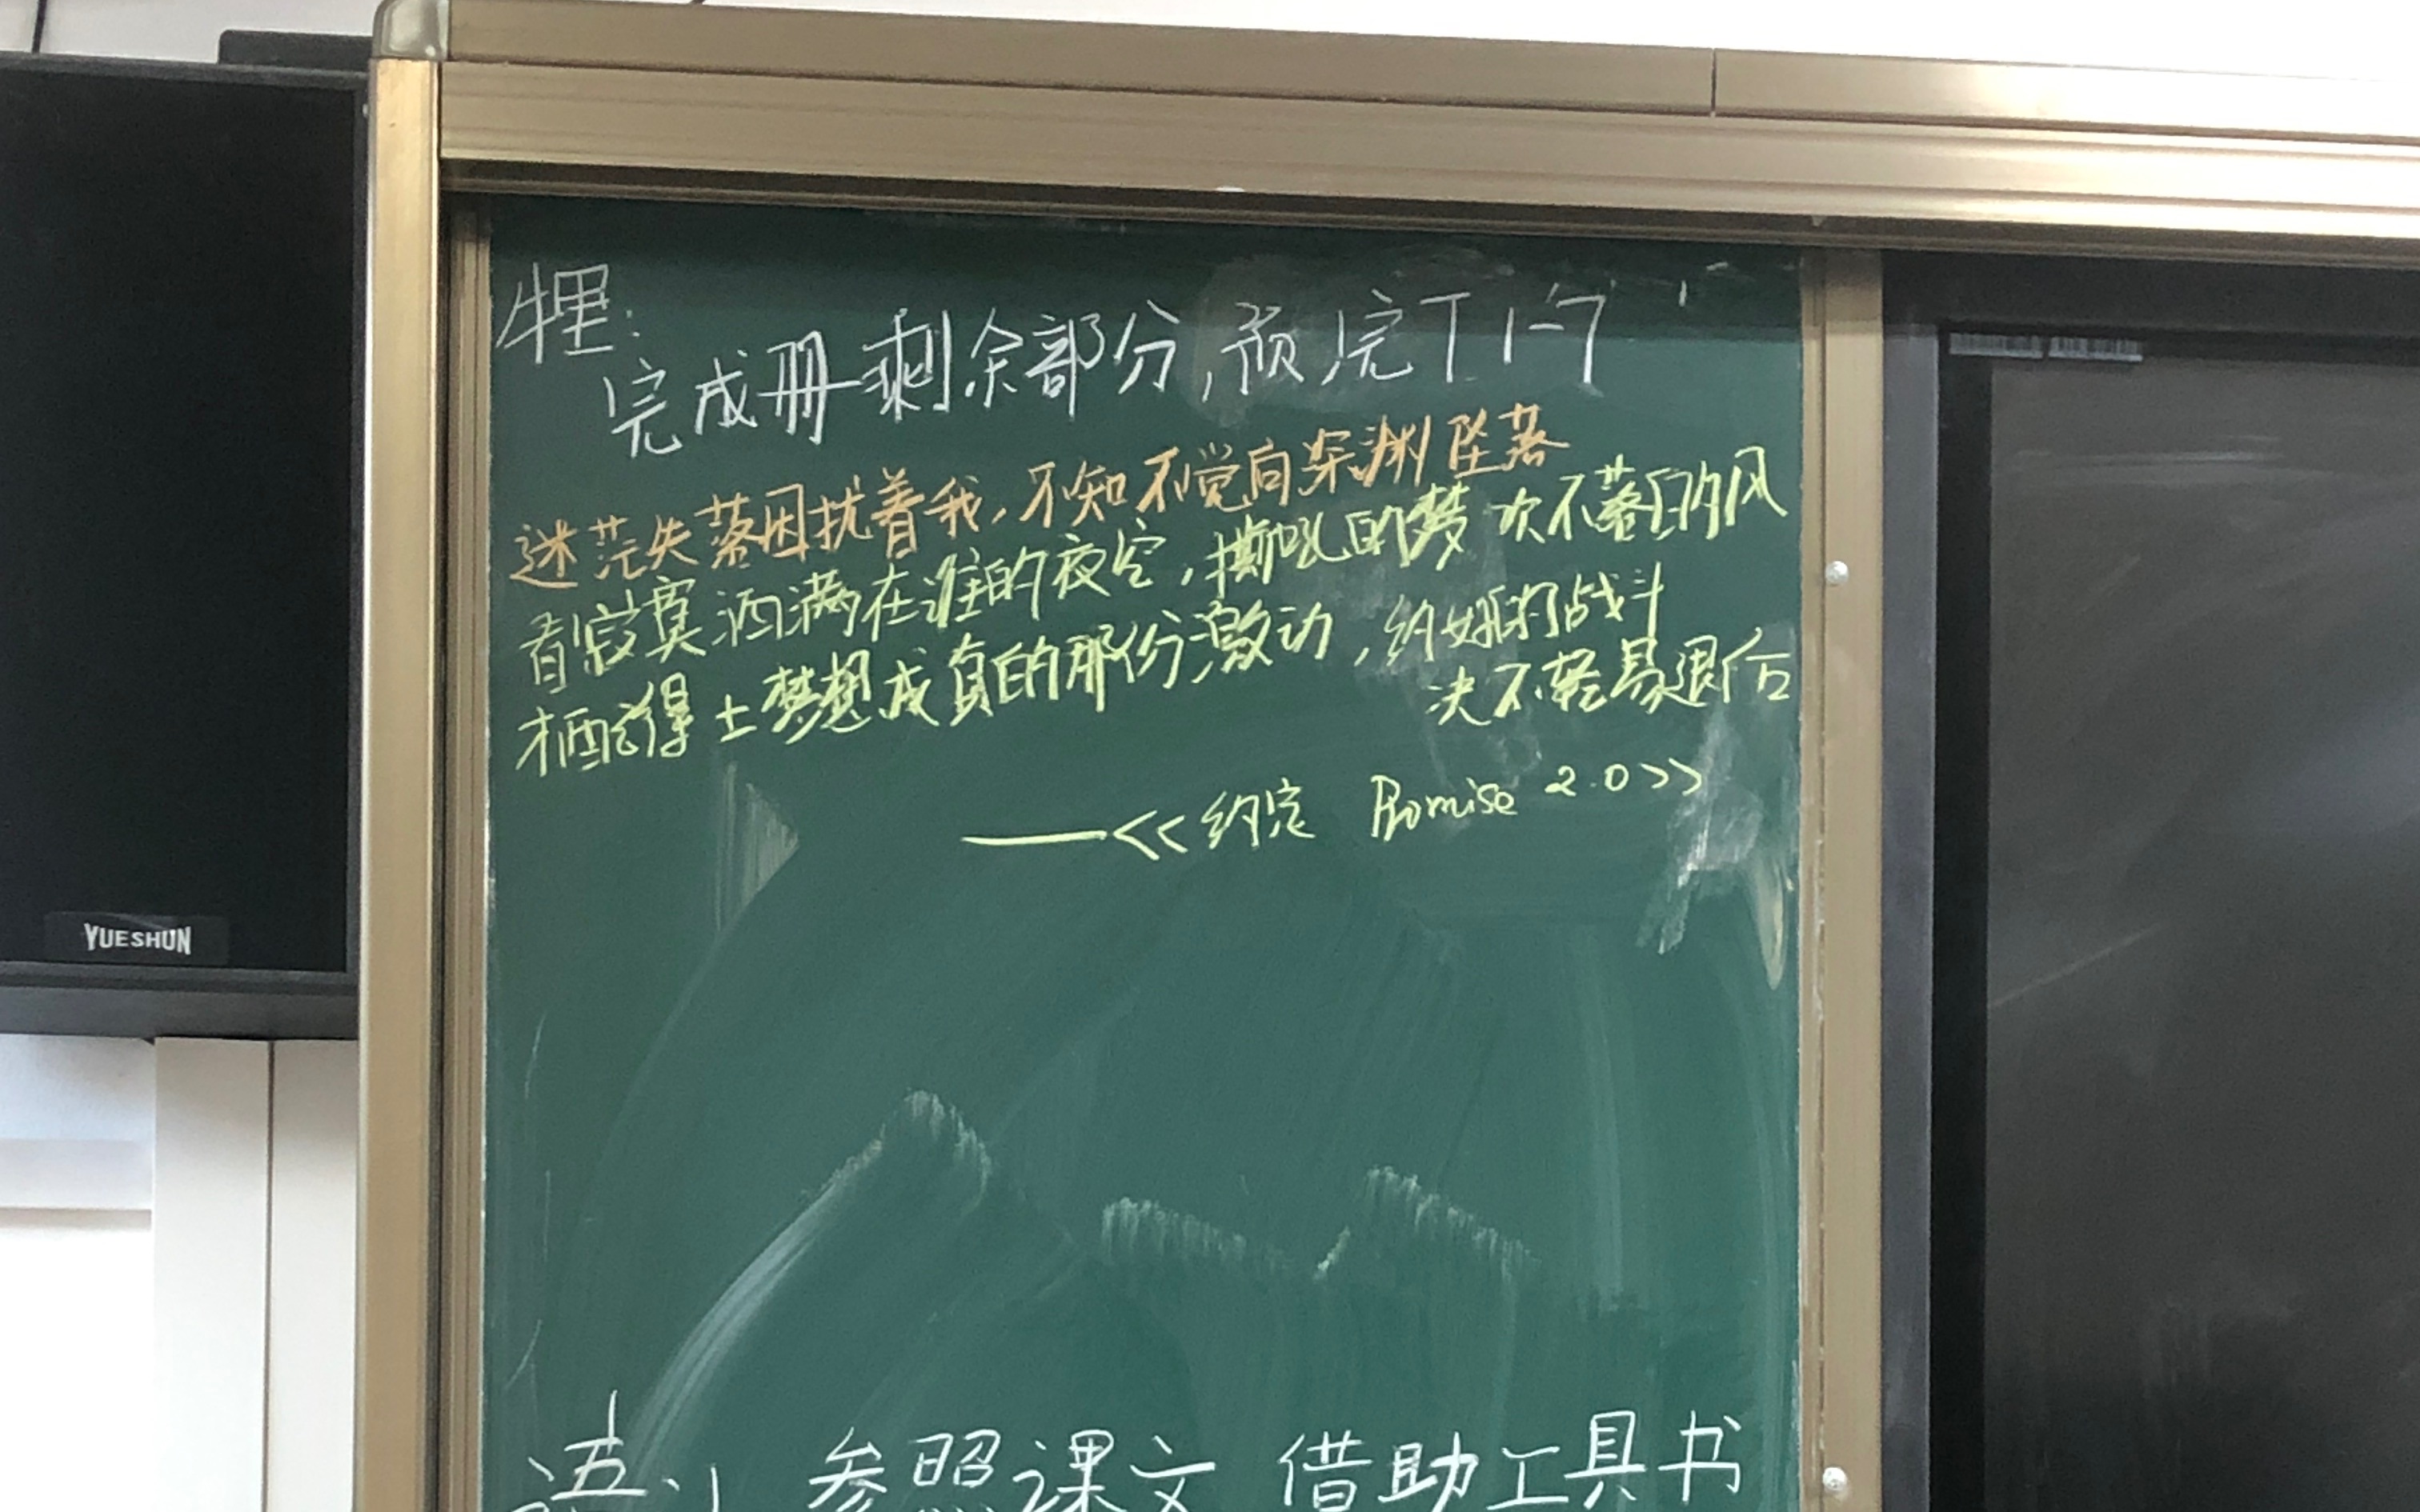 物理:
完成册剩余部分,预
迷茫失落困扰着我,不知不觉向深渊坠落
看寂寞洒满在谁的夜空,撕吼的梦 吹不落的风
才配得上梦想成真的那份激动,约好的战斗
决不轻易退后
——<<约定 Promise 2.0>>
语: 参照课文 借助工具书
YUESHUN